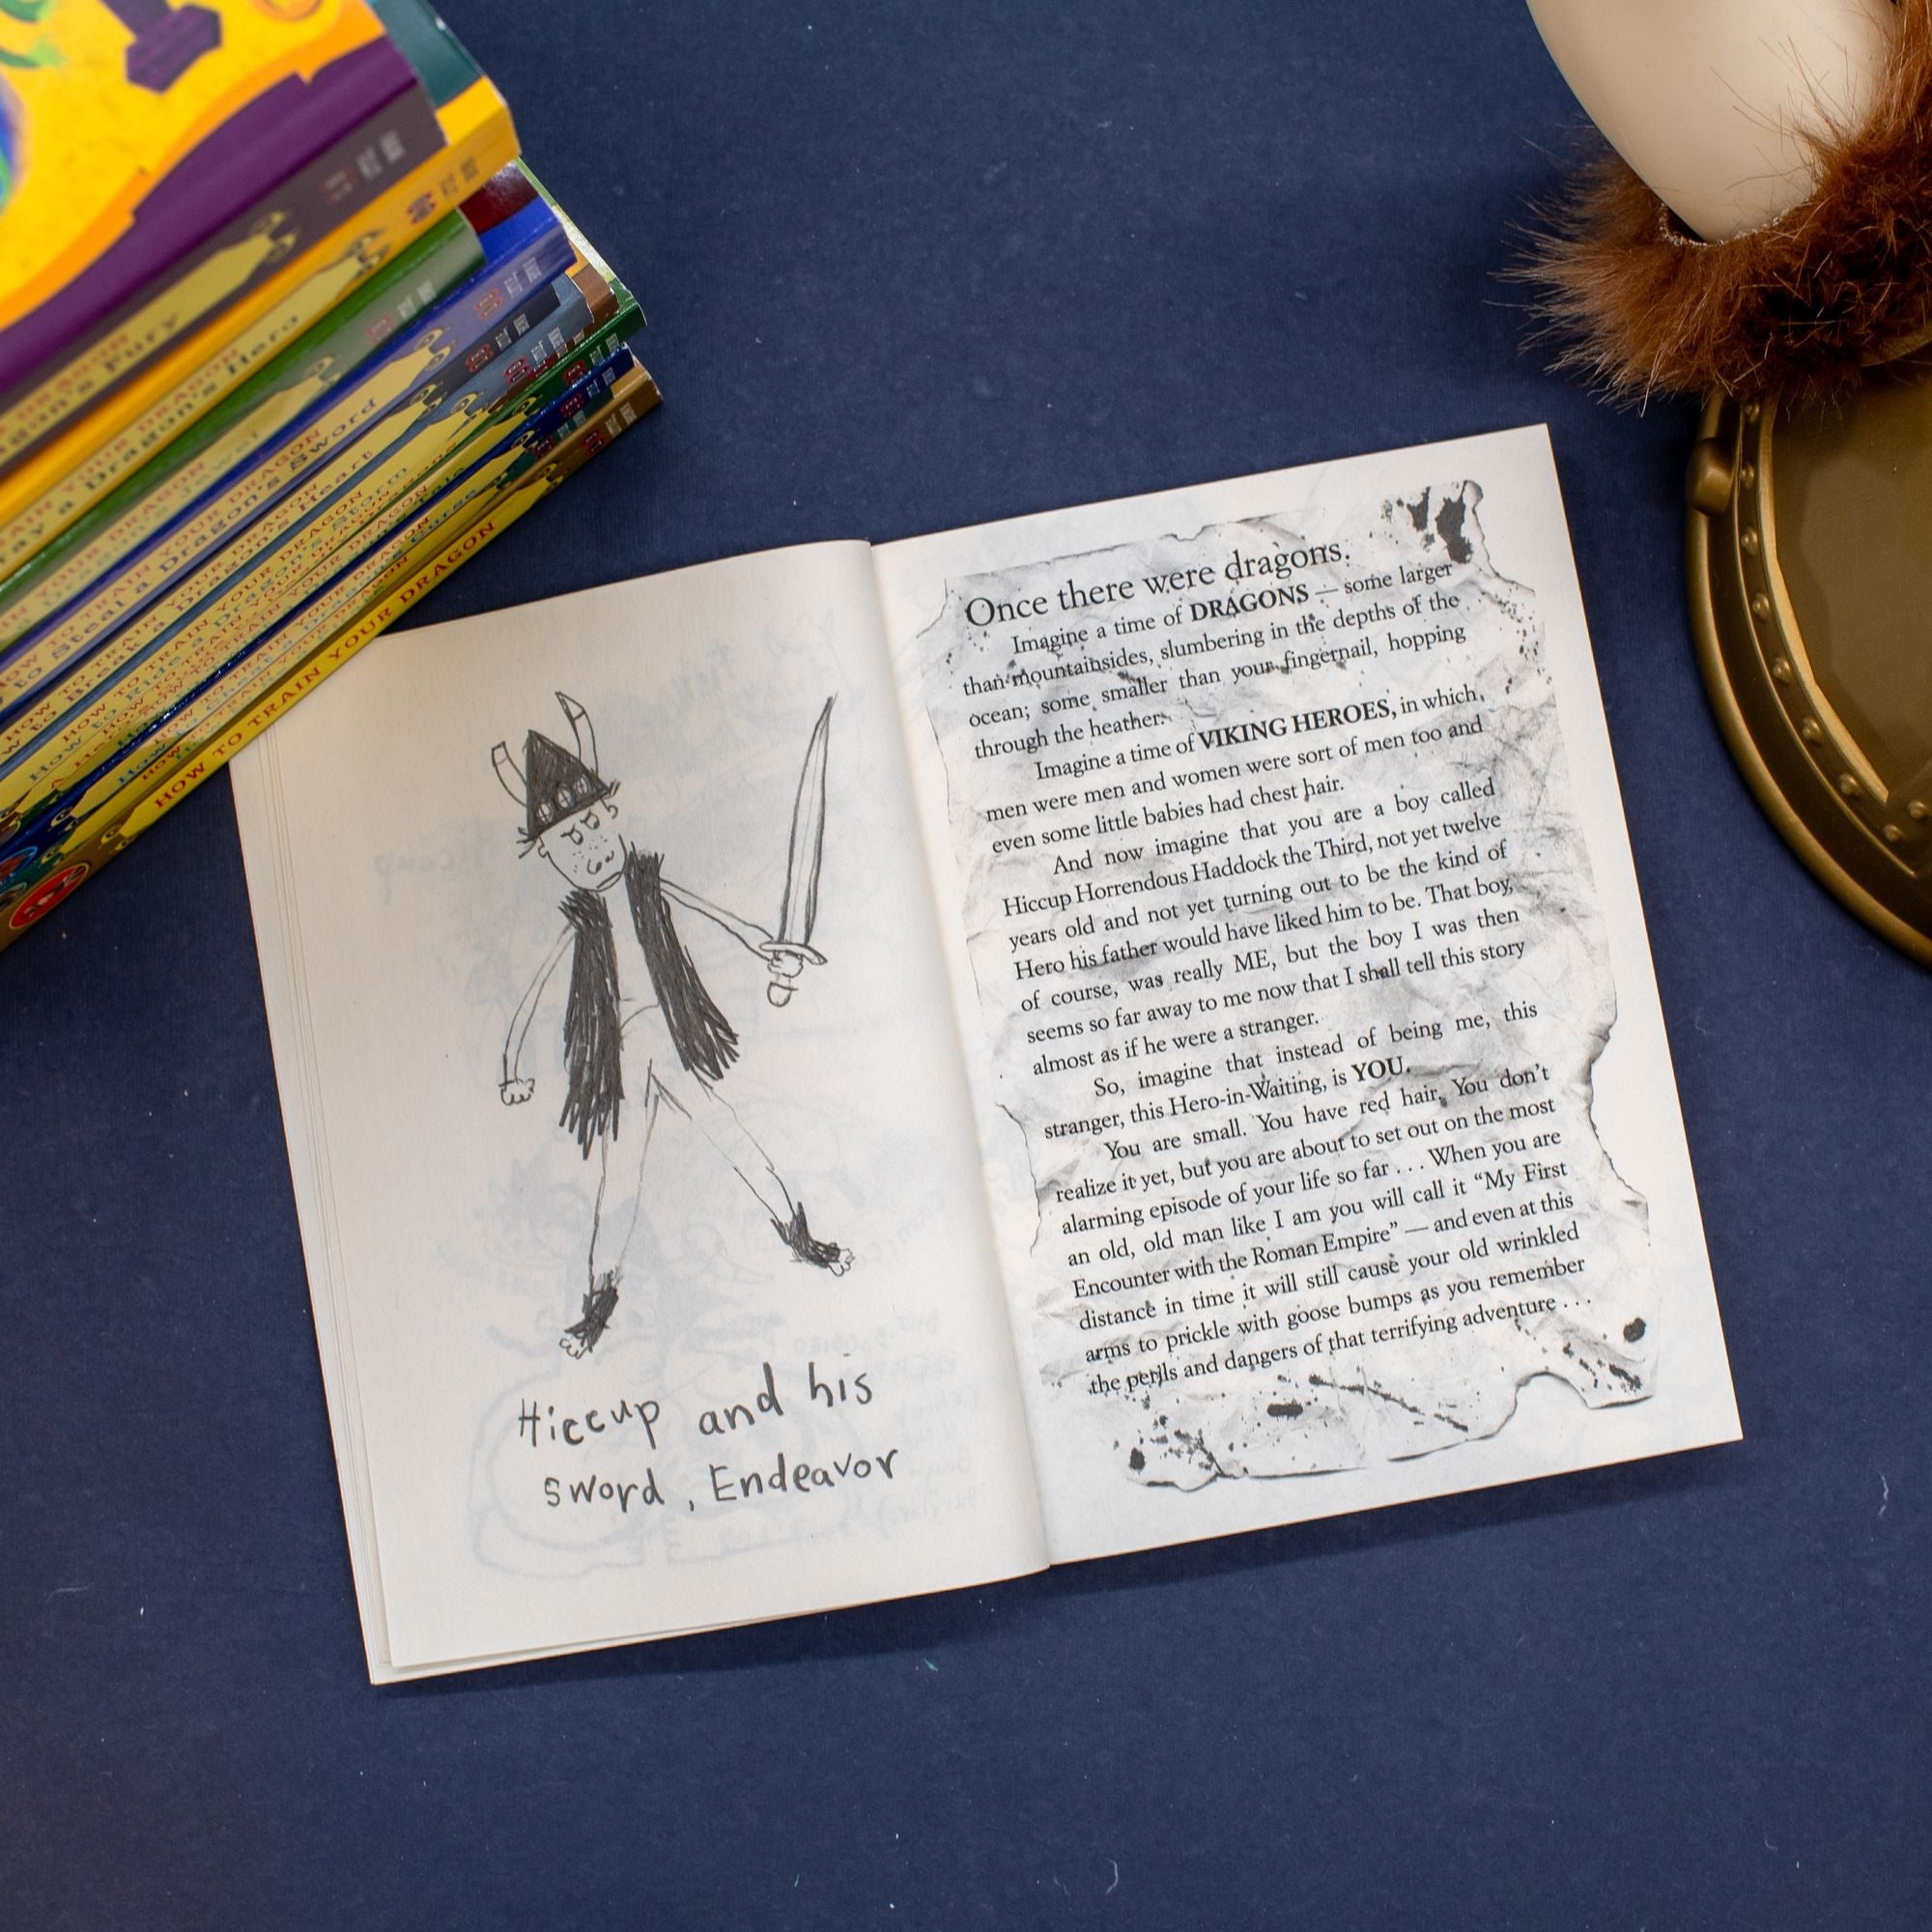 Dragon's Fury
a Dragon's Hero
YOUR DRAGON
to Steal a Dragon's Sword
HOW TO TRAIN YOUR DRAGON
Dragon's Heart
HOW TO TRAIN YOUR DRAGON
HOW TO TRAIN YOUR DRAGON
Hiccup and his
sword, Endeavor
Once there were dragons.
Imagine a time of DRAGONS — some larger
than mountainsides, slumbering in the depths of the
ocean; some smaller than your fingernail, hopping
through the heather.
Imagine a time of VIKING HEROES, in which,
men were men and women were sort of men too and
even some little babies had chest hair.
And now imagine that you are a boy called
Hiccup Horrendous Haddock the Third, not yet twelve
years old and not yet turning out to be the kind of
Hero his father would have liked him to be. That boy,
of course, was really ME, but the boy I was then
seems so far away to me now that I shall tell this story
almost as if he were a stranger.
So, imagine that instead of being me, this
stranger, this Hero-in-Waiting, is YOU.
You are small. You have red hair. You don't
realize it yet, but you are about to set out on the most
alarming episode of your life so far . . . When you are
an old, old man like I am you will call it “My First
Encounter with the Roman Empire” — and even at this
distance in time it will still cause your old wrinkled
arms to prickle with goose bumps as you remember
the perils and dangers of that terrifying adventure . . .